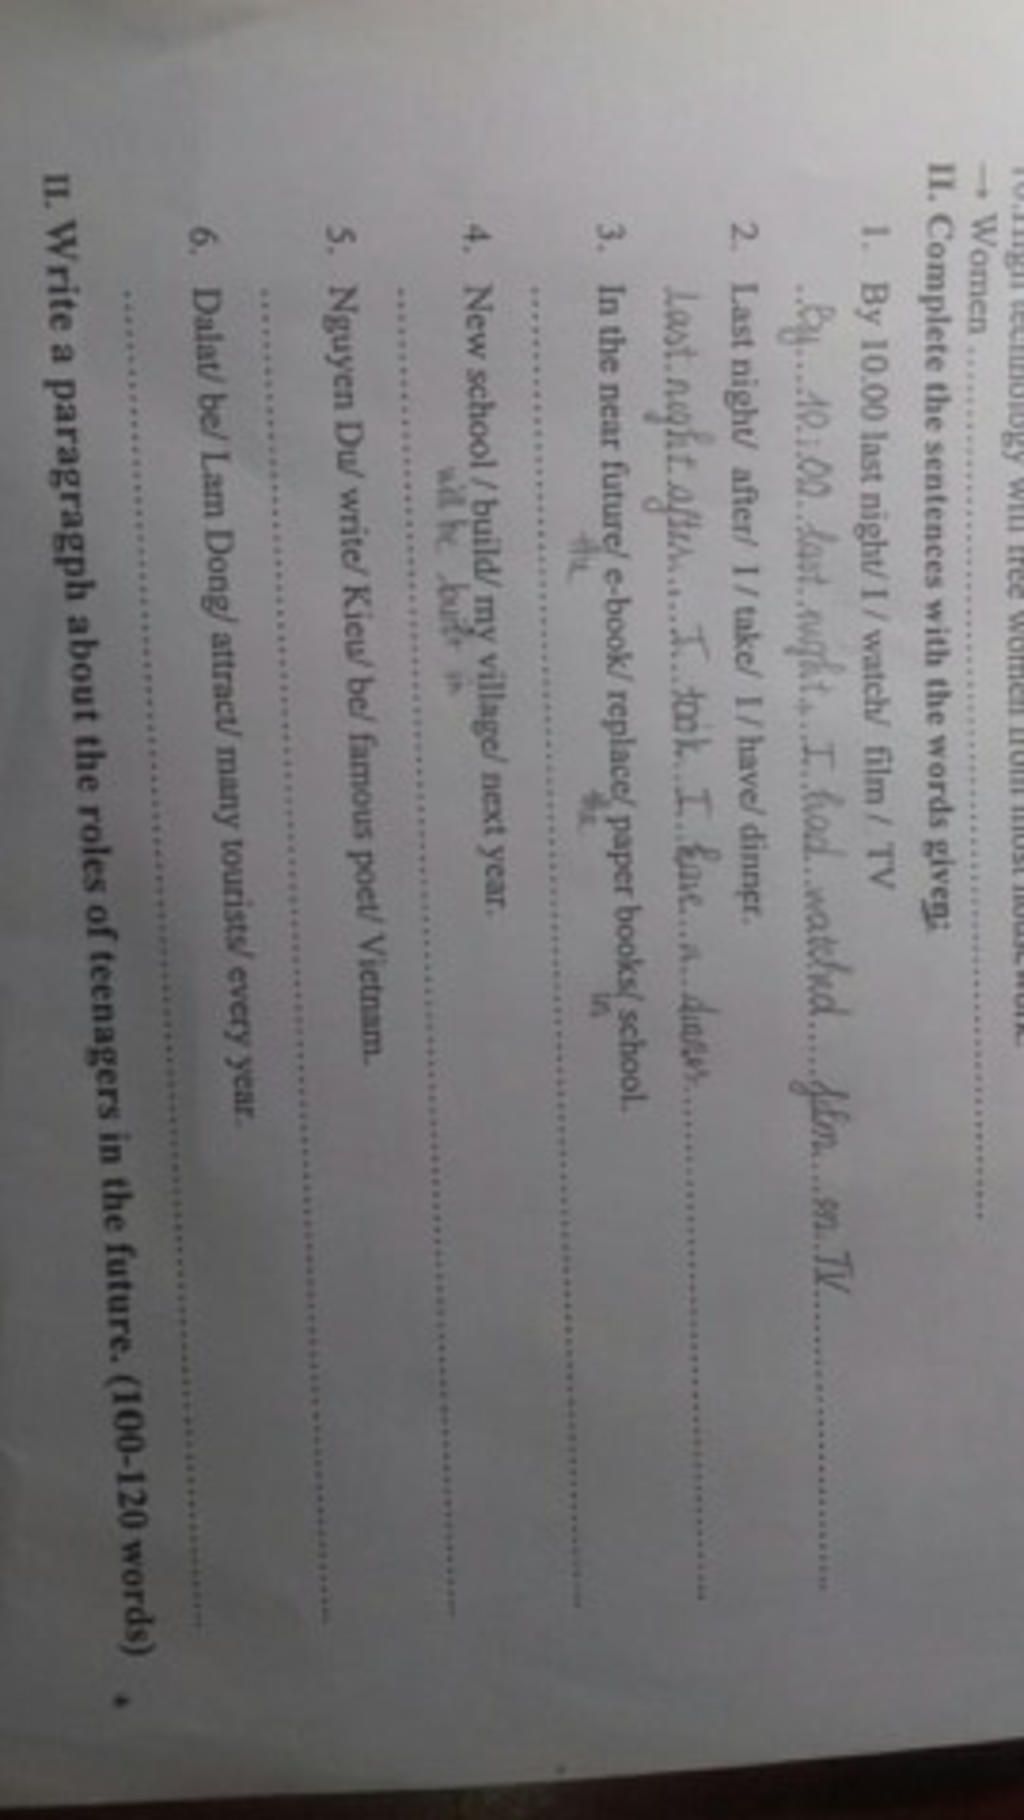 technology will free women from most housework.
→ Women ........................................
II. Complete the sentences with the words given:
1. By 10.00 last night/ I / watch/ film / TV
By 10:00 last night, I had watched film on TV
2. Last night/ after/ I / take/ I / have/ dinner.
Last night after I took I have a dinner
3. In the near future/ e-book/ replace/ paper books/ school.
the the in
4. New school / build/ my village/ next year.
will be built in
5. Nguyen Du/ write/ Kieu/ be/ famous poet/ Vietnam.
6. Dalat/ be/ Lam Dong/ attract/ many tourists/ every year.
II. Write a paragragph about the roles of teenagers in the future. (100-120 words)